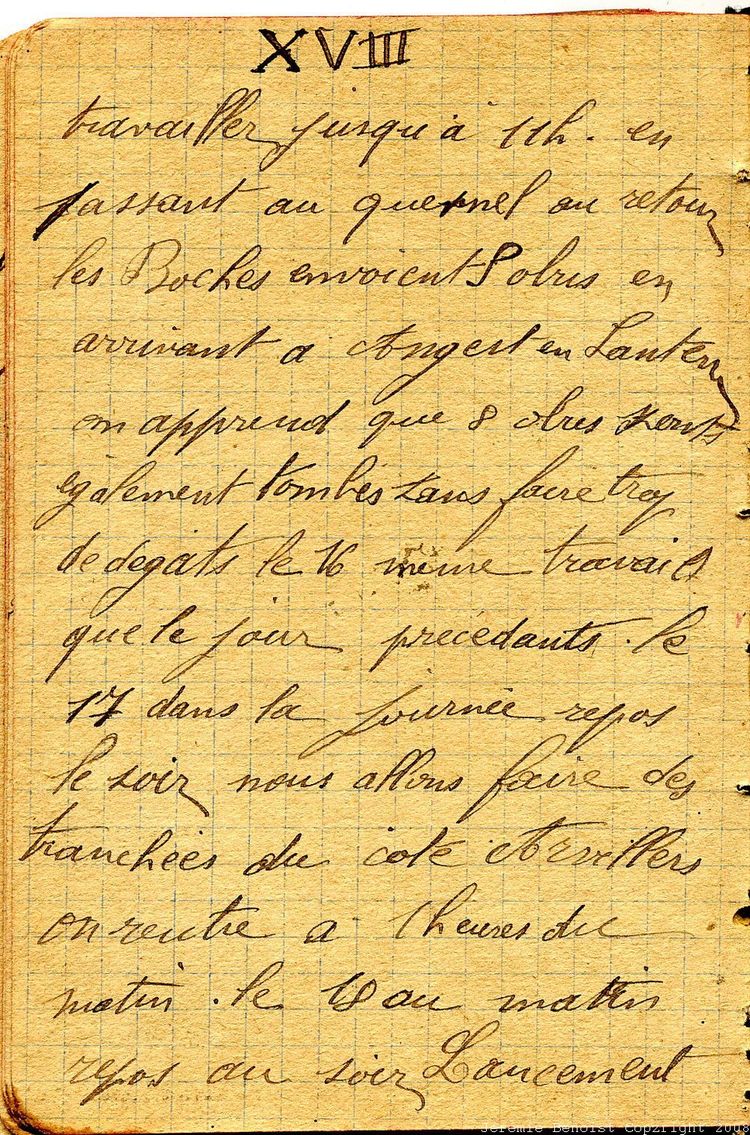 XVIII
travailler jusqu'à 11h. en
passant au quesnel au retour
les Boches envoient 8 obus en
arrivant a Angest en Santerr
on apprend que 8 obus sonts
également tombés sans faire trop
de degats le 16 même travail
que le jour précédants. le
17 dans la journée repos
le soir nous allons faire des
tranchées du coté Arvillers
on rentre a 1 heures du
matin. le 18 au matin
repos au soir Lancement
Jeremie Benoist Copyright 2008